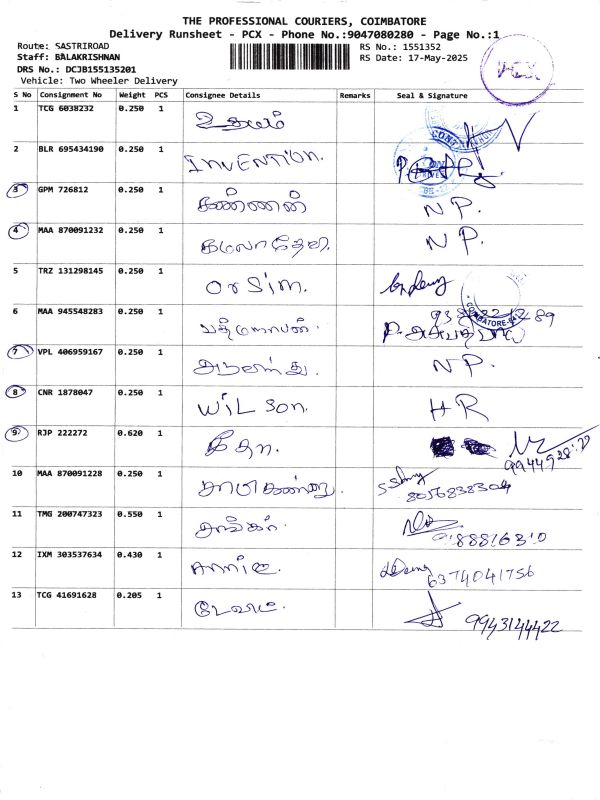 THE PROFESSIONAL COURIERS, COIMBATORE
Delivery Runsheet - PCX - Phone No.:9047080280 - Page No.:1
Route: SASTRIROAD
RS No.: 1551352
Staff: BALAKRISHNAN
RS Date: 17-May-2025
DRS No.: DCJB155135201
Vehicle: Two Wheeler Delivery
PCX
S No Consignment No Weight PCS Consignee Details Remarks Seal & Signature
1 TCG 6038232 0.250 1 உதயம்
2 BLR 695434190 0.250 1 INVENTION.
3 GPM 726812 0.250 1 கண்ணன் NP.
4 MAA 870091232 0.250 1 கமலாதேவி. NP.
5 TRZ 131298145 0.250 1 Orsim.
6 MAA 945548283 0.250 1 பத்மநாபன்.
COIMBATORE
7 VPL 406959167 0.250 1 NP.
8 CNR 1878047 0.250 1 WILSON. HR
9 RJP 222272 0.620 1 கீதா.
10 MAA 870091228 0.250 1 8056838304
11 TMG 200747323 0.550 1 சங்கர்.
12 IXM 303537634 0.430 1 Annie. 6374041756
13 TCG 41691628 0.205 1 டேவிட். 9943144422